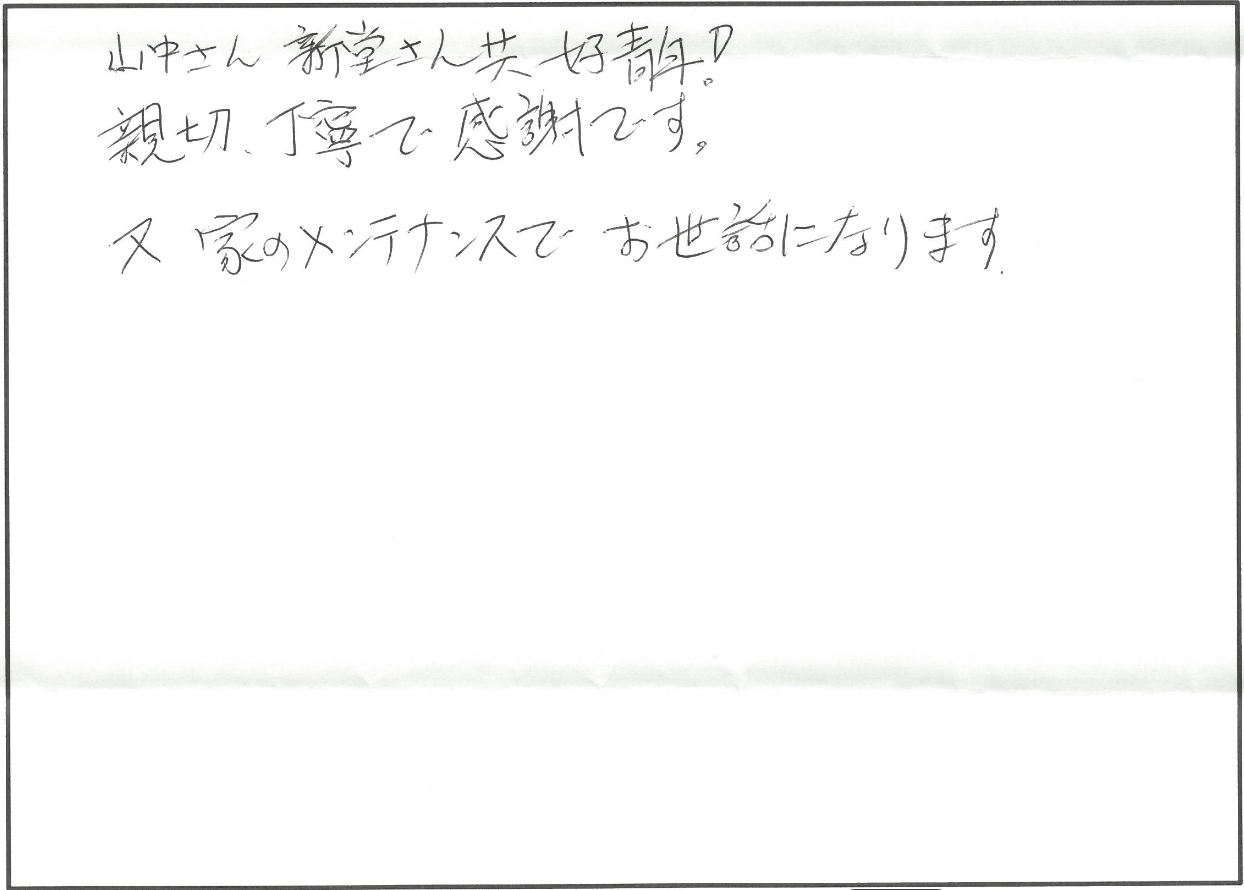 山中さん 新堂さん共 好青年!
親切、丁寧で 感謝です。
又 家のメンテナンスで お世話になります.